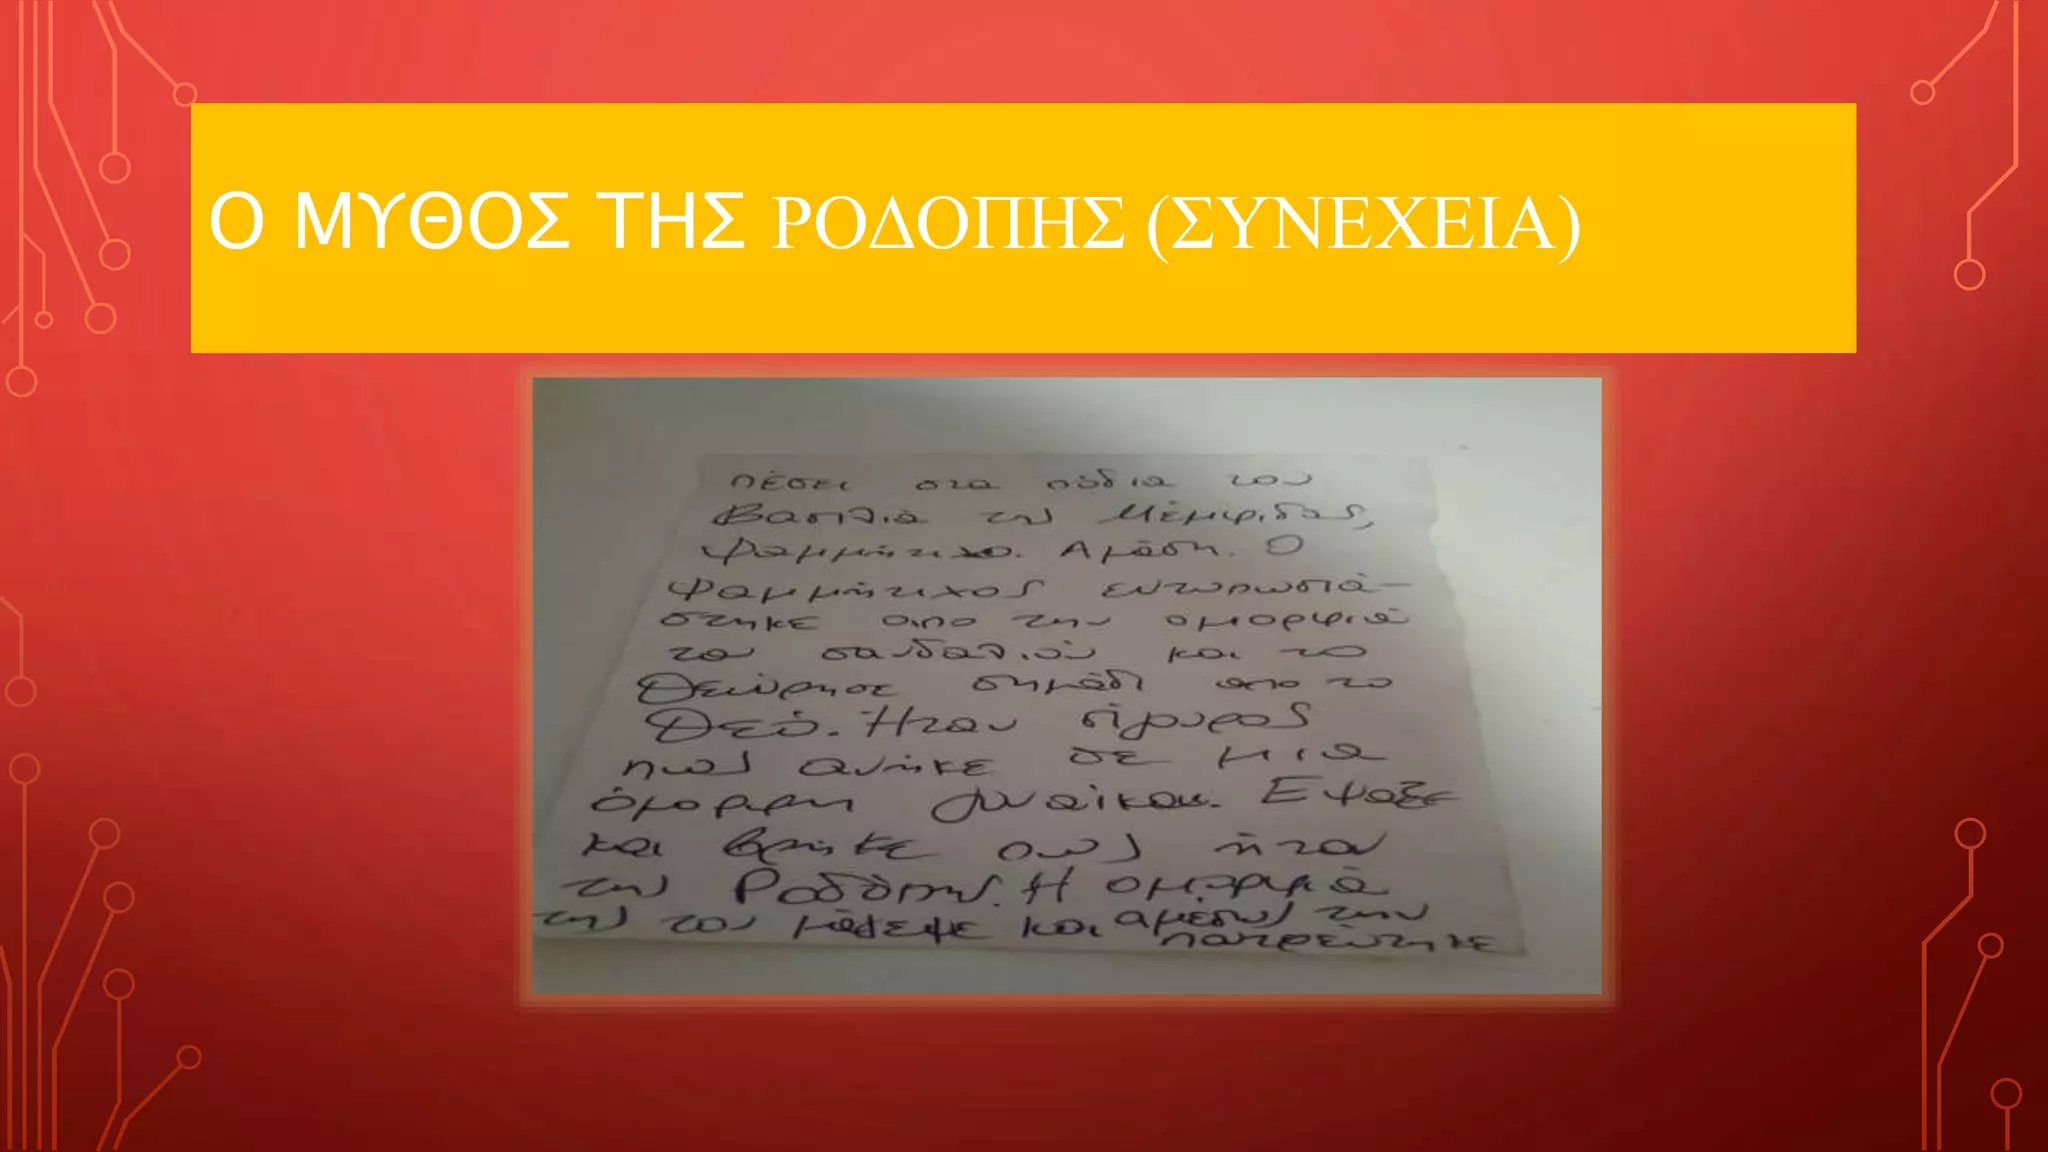 Ο ΜΥΘΟΣ ΤΗΣ ΡΟΔΟΠΗΣ (ΣΥΝΕΧΕΙΑ)
πέσει στα πόδια του
Βασιλιά της Μέμφιδας,
Ψαμμήτιχο. Αμάση. Ο
Ψαμμήτιχος εντυπωσιά-
στηκε απο την ομορφιά
του σανδαλιού και το
Θεώρησε σημάδι απο το
Θεό. Ήταν σίγουρος
πως ανήκε σε μια
όμορφη γυναίκα. Εψαξε
και βρήκε πως ήταν
της Ροδόπης. Η ομορφιά
της τον μάγεψε και αμέσως την
παντρεύτηκε